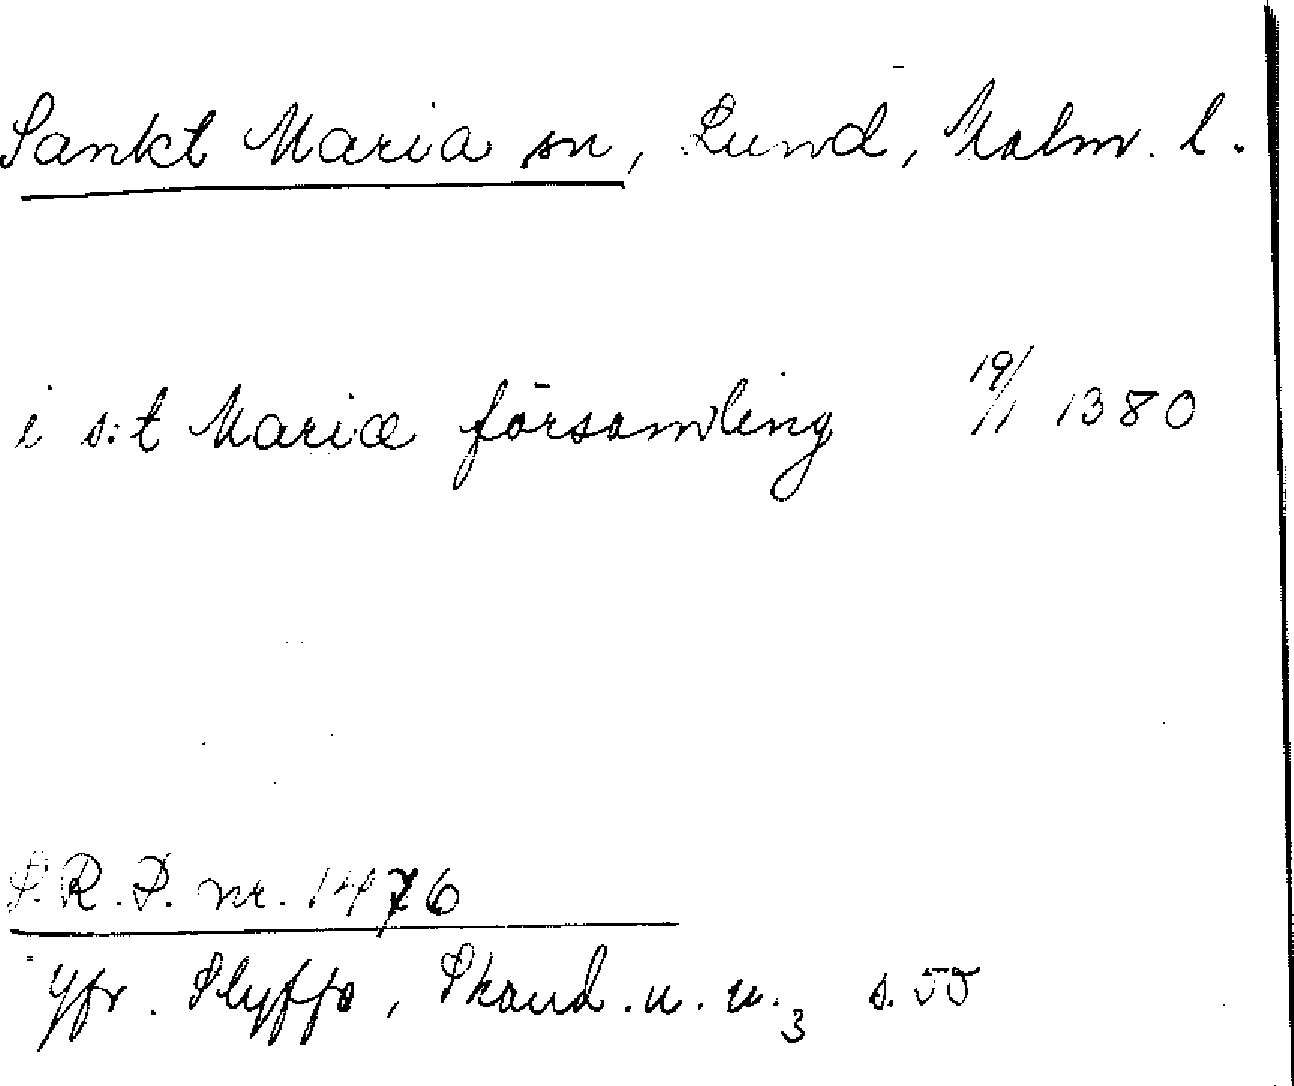 Sankt Maria sn, Lund, Malm. l.
i s:t Mariæ församling 19/1 1380
S.R.P. nr. 1476
Jfr. Styffe, Skand. u. u.3 s. 55